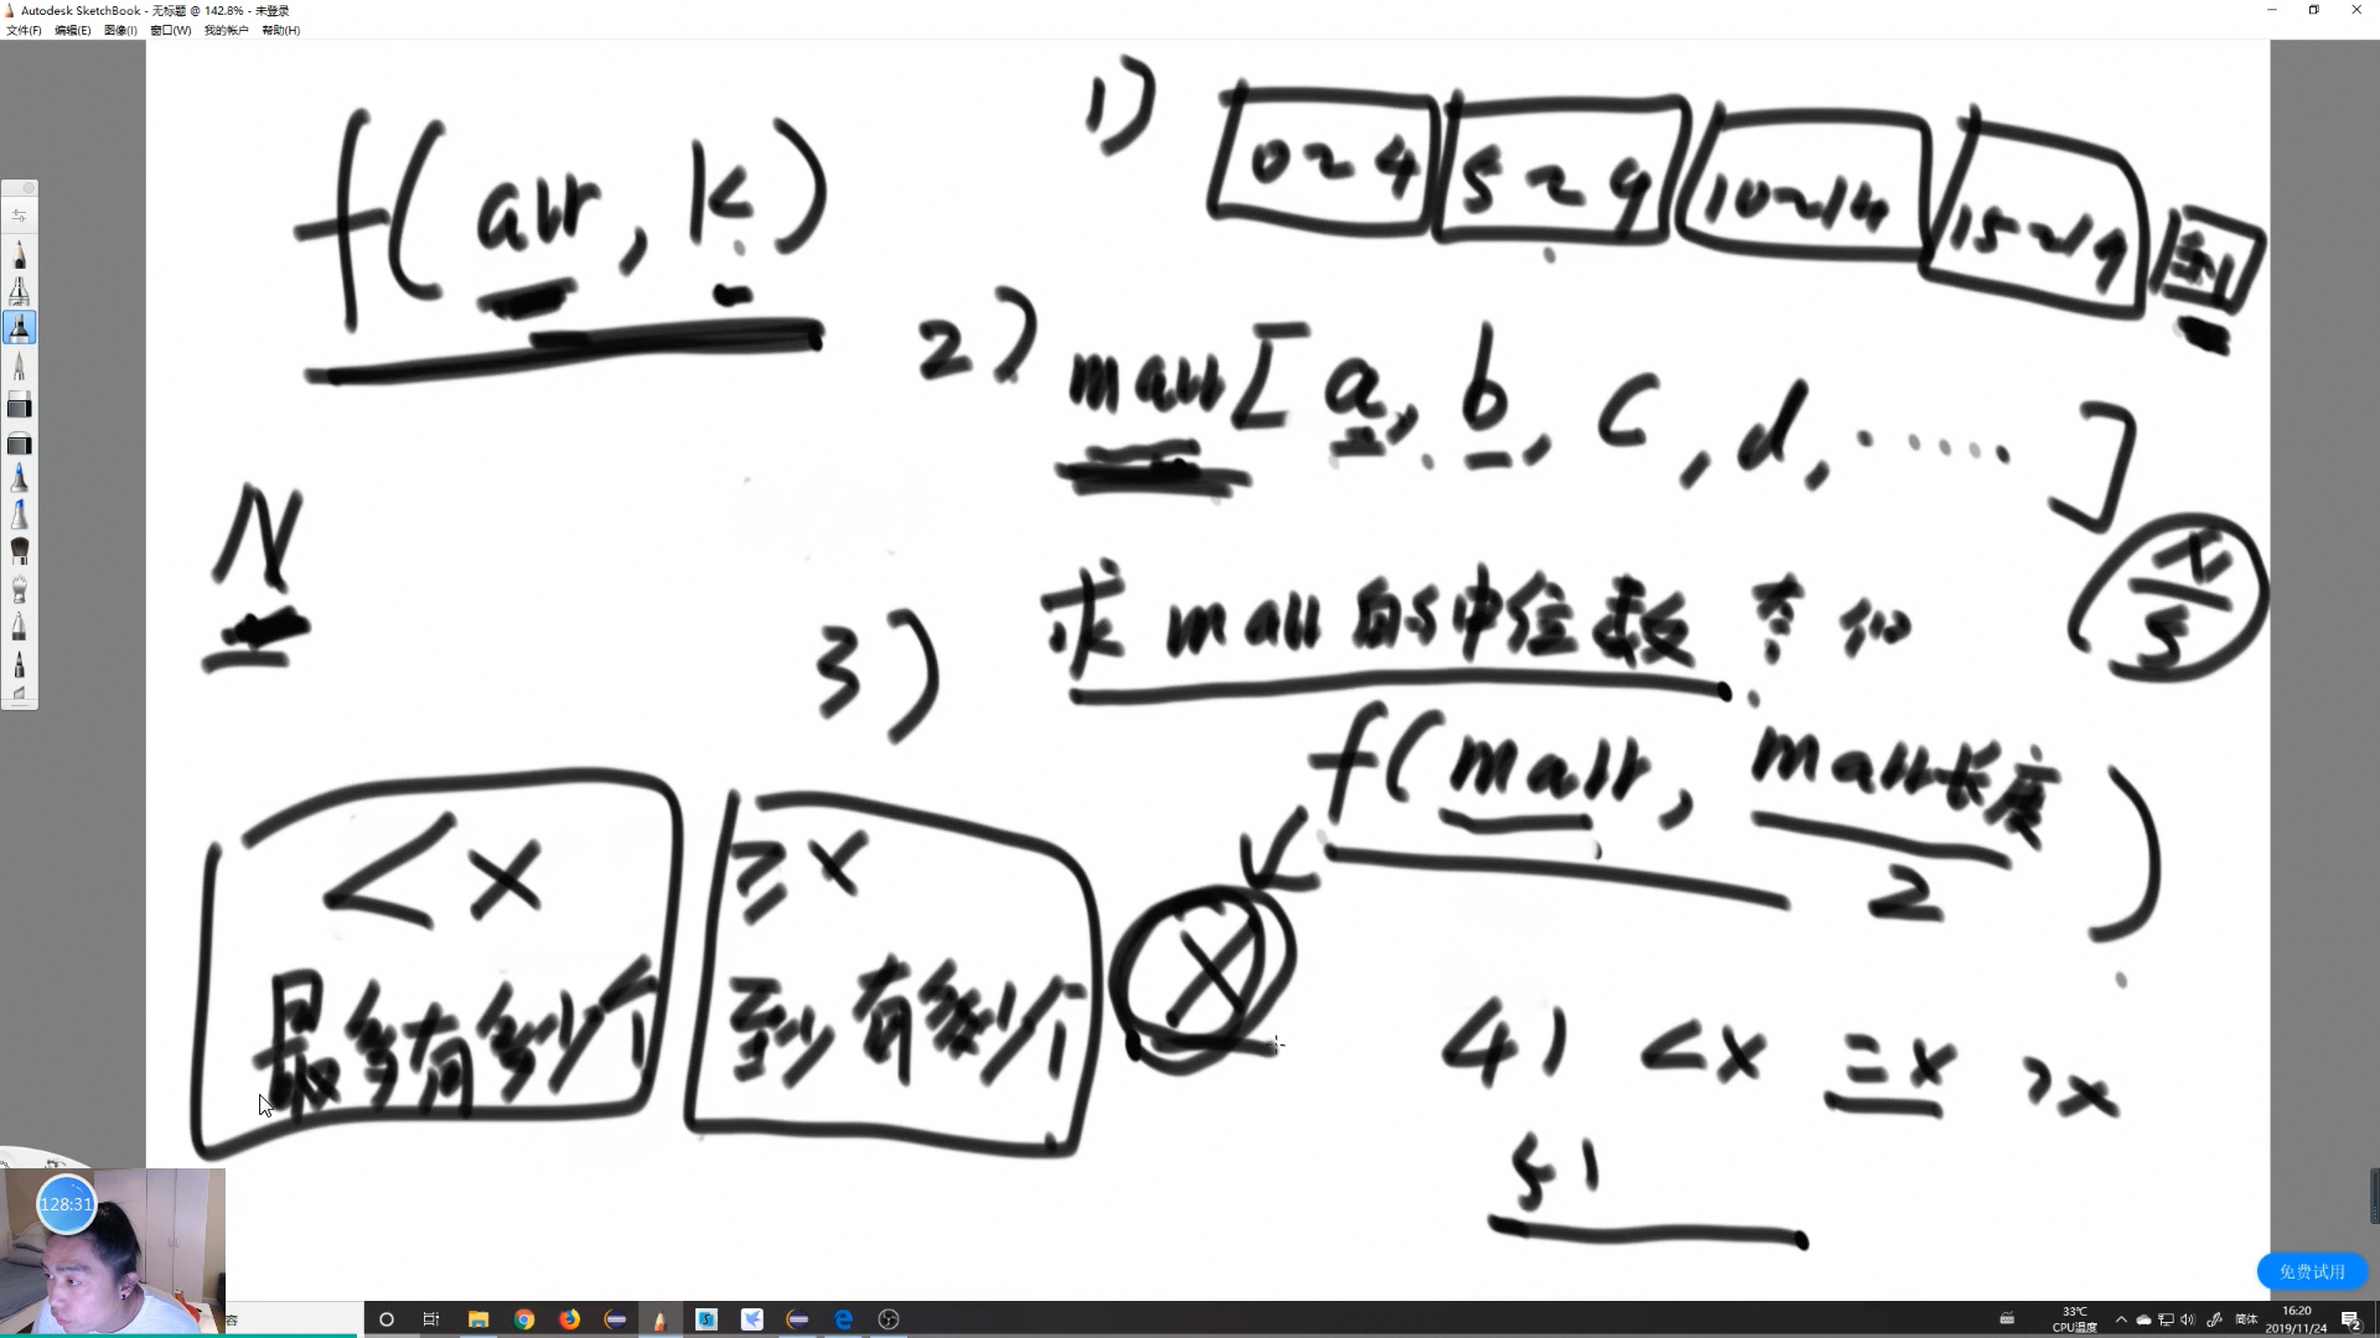 Autodesk SketchBook - 无标题 @ 142.8% - 未登录
文件(F) 编辑(E) 图像(I) 窗口(W) 我的帐户 帮助(H)
f( arr, k )
1) 0~4 5~9 10~14 15~19 剩
2) marr[ a, b, c, d, ..... ]
N/5
N
3) 求 marr 的中位数
f( marr, marr长度/2 )
x
< x
最多有多少个
≥ x
至少有多少个
4) <x =x >x
5)
128:31
免费试用
容
33℃
CPU温度
简体
16:20
2019/11/24
2